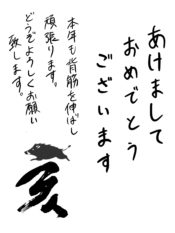 あけまして
おめでとう
ございます
本年も背筋を伸ばし
頑張ります。
どうぞよろしくお願い
致します。
亥